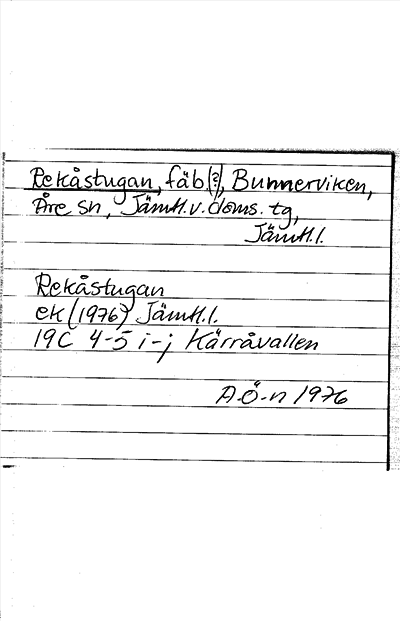 Rekåstugan, fäb.(?), Bunnerviken,
Åre sn, Jämtl.v.doms.tg,
Jämtl.l.
Rekåstugan
ek (1976) Jämtl.l.
19C 4-5 i-j Kärråvallen
A.Ö-n 1976